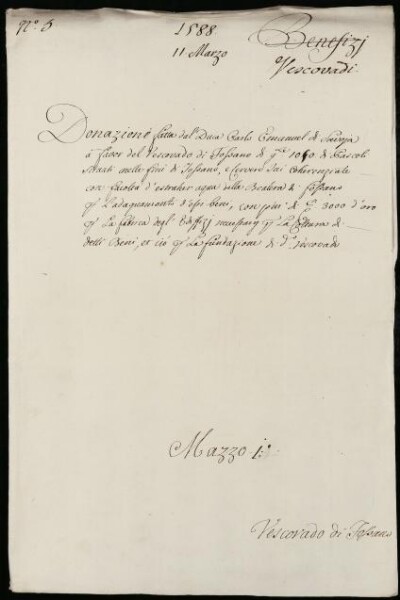 N.º 5
1588
11 Marzo
Benefizj
Vescovadi
Donazione fatta dal Duca Carlo Emanuel di Savoja
a favor del Vescovado di Fossano di g.te 1010 di Pascoli
Arati nelle fini di Fossano, e coerenziate
con facoltà d'estraher aqua dalla Bealera di Fossano
p. L'adaquamento d'essi beni, con più di 3000 d'oro
p. La fabrica degl' Edifizj necessarj p. La Coltura di
detti Beni, et ciò p. La fundazione di d.º vescovado
Mazzo 1:º
Vescovado di Fossano